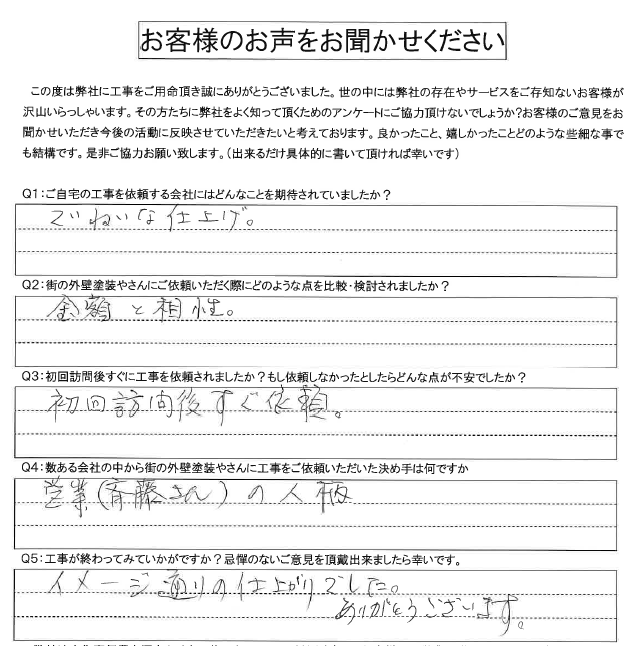 お客様のお声をお聞かせください
この度は弊社に工事をご用命頂き誠にありがとうございました。世の中には弊社の存在やサービスをご存知ないお客様が
沢山いらっしゃいます。その方たちに弊社をよく知って頂くためのアンケートにご協力頂けないでしょうか?お客様のご意見をお
聞かせいただき今後の活動に反映させていただきたいと考えております。良かったこと、嬉しかったことどのような些細な事で
も結構です。是非ご協力お願い致します。(出来るだけ具体的に書いて頂ければ幸いです)
Q1:ご自宅の工事を依頼する会社にはどんなことを期待されていましたか?
ていねいな仕上げ。
Q2:街の外壁塗装やさんにご依頼いただく際にどのような点を比較・検討されましたか?
金額と相性。
Q3:初回訪問後すぐに工事を依頼されましたか?もし依頼しなかったとしたらどんな点が不安でしたか?
初回訪問後すぐ依頼。
Q4:数ある会社の中から街の外壁塗装やさんに工事をご依頼いただいた決め手は何ですか
営業(斉藤さん)の人柄
Q5:工事が終わってみていかがですか?忌憚のないご意見を頂戴出来ましたら幸いです。
イメージ通りの仕上がりでした。
ありがとうございます。